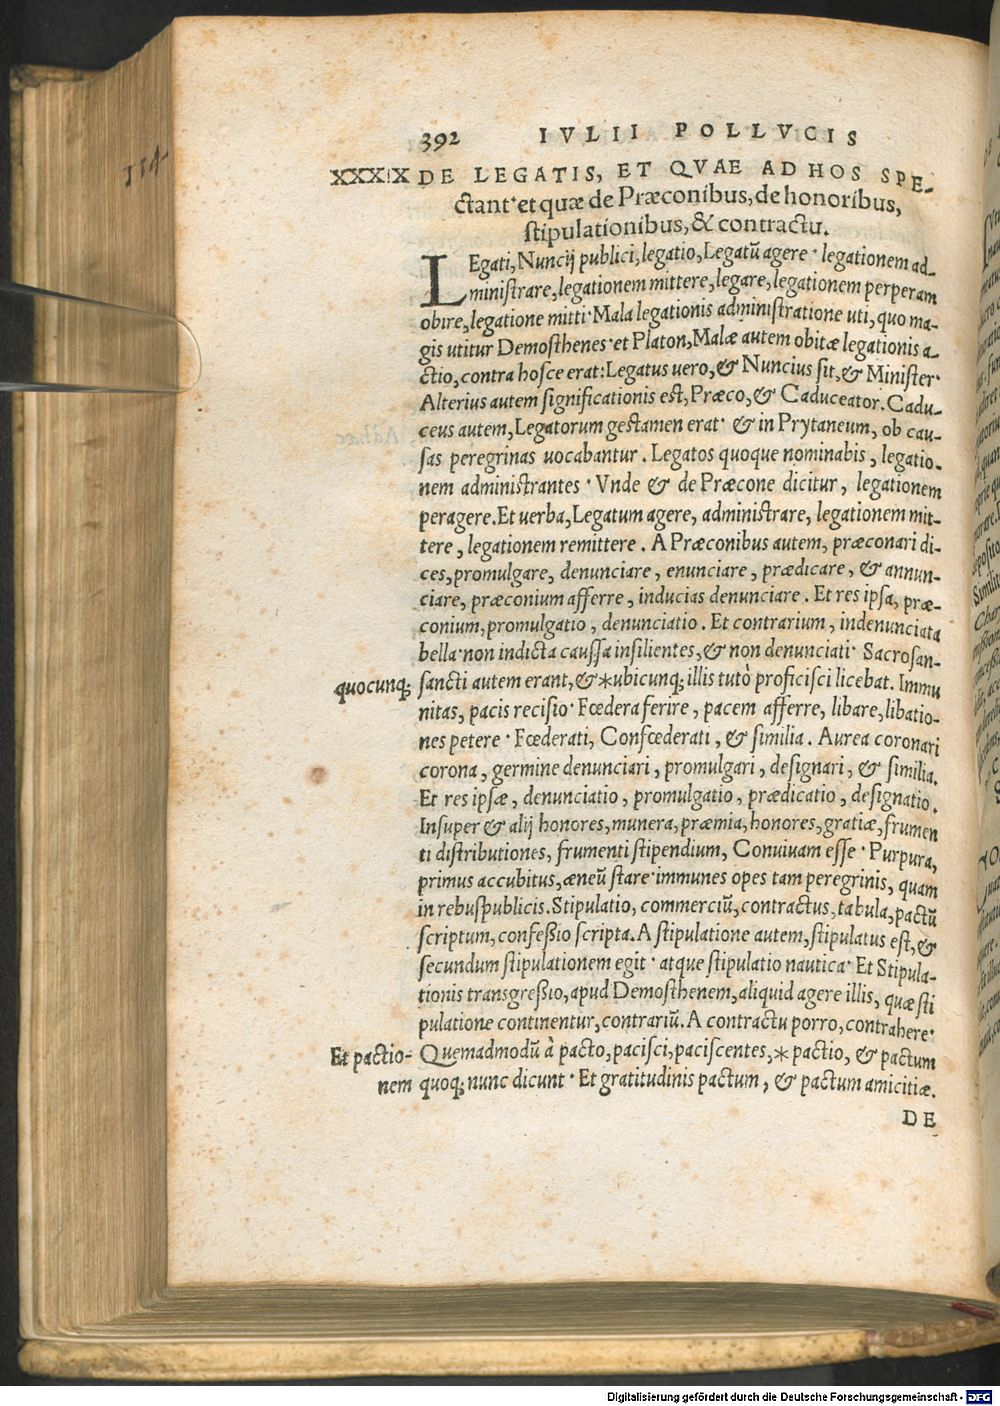 114
392 IVLII POLLVCIS
XXXIX DE LEGATIS, ET QVAE AD HOS SPE-
ctant· et quæ de Præconibus, de honoribus,
stipulationibus, & contractu.
LEgati, Nuncij publici, legatio, Legatū agere· legationem ad-
ministrare, legationem mittere, legare, legationem perperam
obire, legatione mitti· Mala legationis administratione uti, quo ma-
gis utitur Demosthenes· et Platon, Malæ autem obitæ legationis a-
ctio, contra hosce erat: Legatus uero, & Nuncius sit, & Minister·
Alterius autem significationis est, Præco, & Caduceator. Cadu-
ceus autem, Legatorum gestamen erat· & in Prytaneum, ob cau-
sas peregrinas uocabantur. Legatos quoque nominabis, legatio-
nem administrantes· Vnde & de Præcone dicitur, legationem
peragere. Et uerba, Legatum agere, administrare, legationem mit-
tere, legationem remittere. A Præconibus autem, præconari di-
ces, promulgare, denunciare, enunciare, prædicare, & annun-
ciare, præconium afferre, inducias denunciare. Et res ipsa, præ-
conium, promulgatio, denunciatio. Et contrarium, indenunciata
bella· non indicta caussa insilientes, & non denunciati· Sacrosan-
quocunq; sancti autem erant, & *ubicunq; illis tutò proficisci licebat. Immu
nitas, pacis recisio· Fœdera ferire, pacem afferre, libare, libatio-
nes petere· Fœderati, Confœderati, & similia. Aurea coronari
corona, germine denunciari, promulgari, designari, & similia.
Et res ipsæ, denunciatio, promulgatio, prædicatio, designatio.
Insuper & alij honores, munera, præmia, honores, gratiæ, frumen
ti distributiones, frumenti stipendium, Conuiuam esse· Purpura,
primus accubitus, æneū stare· immunes opes tam peregrinis, quam
in rebuspublicis. Stipulatio, commerciū, contractus, tabula, pactū
scriptum, confeßio scripta. A stipulatione autem, stipulatus est, &
secundum stipulationem egit· atque stipulatio nautica· Et Stipula-
tionis transgreßio, apud Demosthenem, aliquid agere illis, quæ sti
pulatione continentur, contrariū. A contractu porro, contrahere·
Et pactio- Quemadmodū à pacto, pacisci, paciscentes, * pactio, & pactum
nem quoq; nunc dicunt· Et gratitudinis pactum, & pactum amicitiæ.
DE
Digitalisierung gefördert durch die Deutsche Forschungsgemeinschaft - DFG